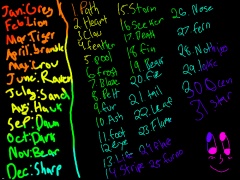 Jan: Grey
Feb: Lion
Mar: Tiger
April: bramble
May: crow
June: Raven
July: Sand
Aug: Hawk
Sep: Dawn
Oct: Dark
Nov: Bear
Dec: Sharp
1 Path
2 Heart
3 Claw
4 Feather
5 pool
6 Frost
7 Blaze
8 Pelt
9 fur
10 Ash
11 Foot
12 eye
13
14 Stripe
15 Storm
16 Seeker
17 Death
18 Fin
19 Bear
20
21 tail
22 Leaf
23 Flame
24
25 fur
26 Nose
27 Fern
28
29
30
31 Star